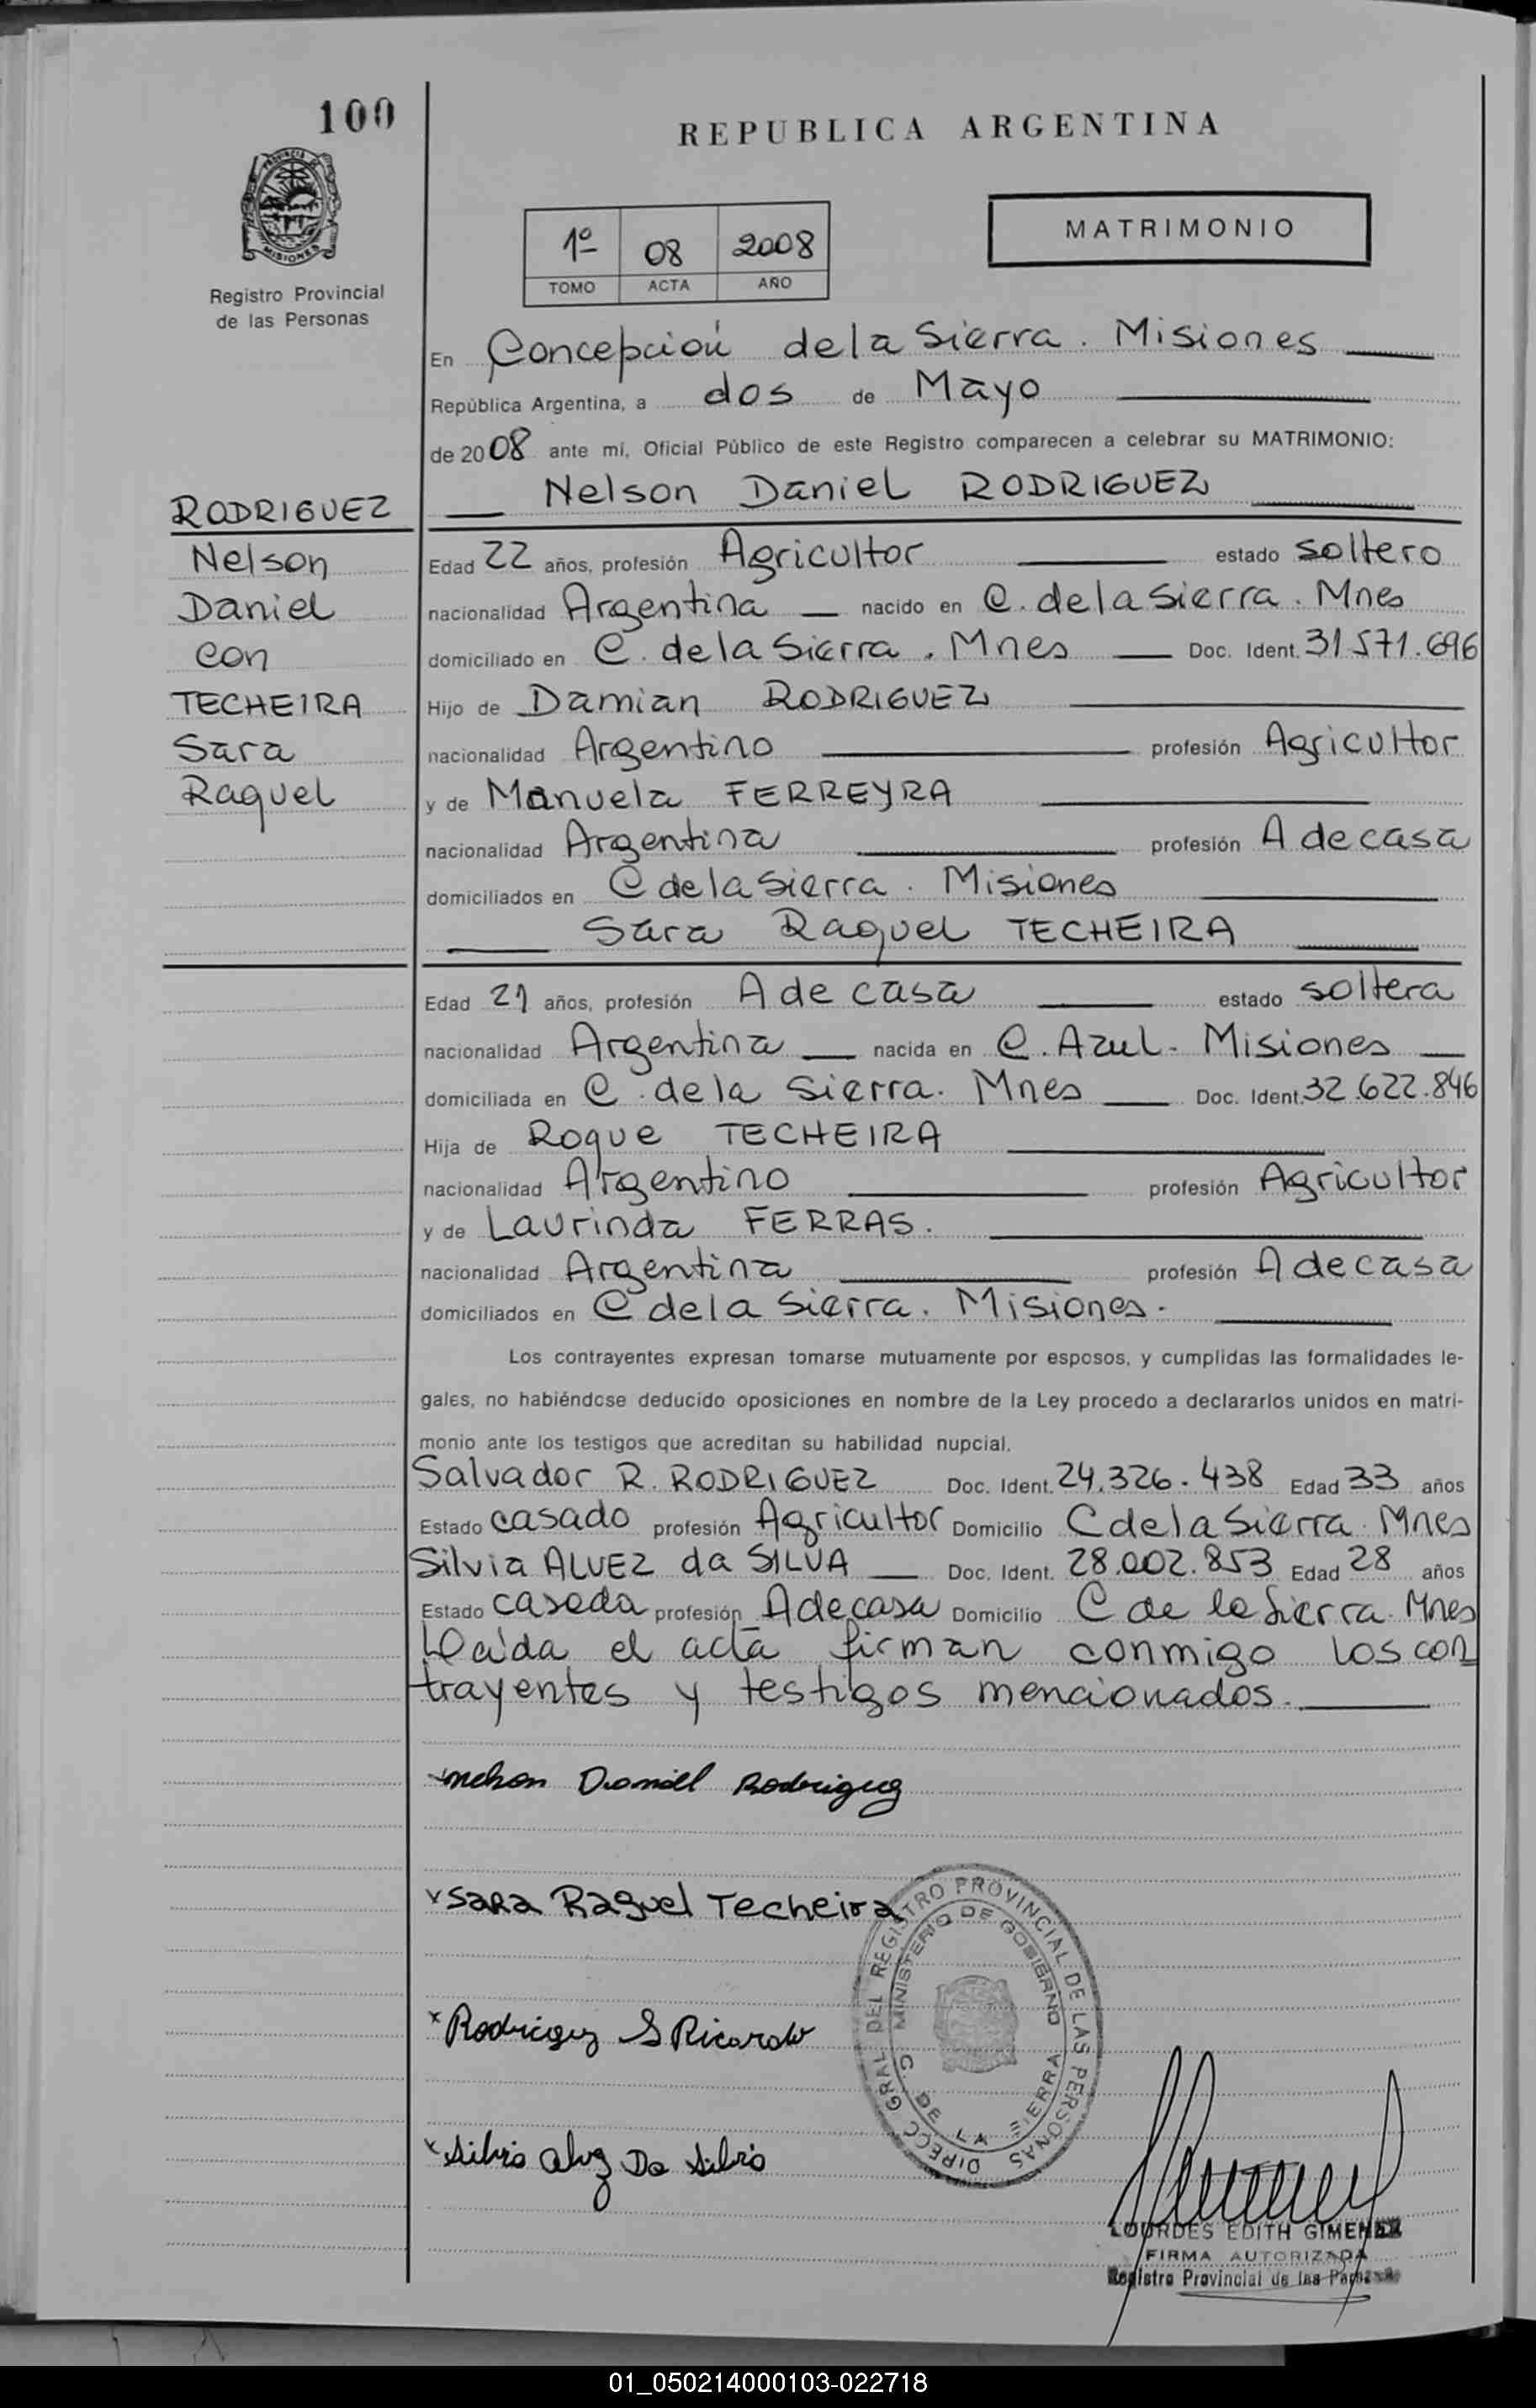 100
REPUBLICA ARGENTINA
PROVINCIA DE
MISIONES
Registro Provincial
de las Personas
1º 08 2008
TOMO ACTA AÑO
MATRIMONIO
En Concepción de la Sierra. Misiones
República Argentina, a dos de Mayo
de 2008 ante mí, Oficial Público de este Registro comparecen a celebrar su MATRIMONIO:
Nelson Daniel RODRIGUEZ
RODRIGUEZ
Nelson
Daniel
con
TECHEIRA
Sara
Raquel
Edad 22 años, profesión Agricultor estado soltero
nacionalidad Argentina nacido en C. de la Sierra. Mnes
domiciliado en C. de la Sierra. Mnes Doc. Ident. 31.571.696
Hijo de Damian RODRIGUEZ
nacionalidad Argentino profesión Agricultor
y de Manuela FERREYRA
nacionalidad Argentina profesión A de casa
domiciliados en C de la Sierra. Misiones
Sara Raquel TECHEIRA
Edad 21 años, profesión A de casa estado soltera
nacionalidad Argentina nacida en C. Azul - Misiones
domiciliada en C. de la Sierra. Mnes Doc. Ident. 32.622.846
Hija de Roque TECHEIRA
nacionalidad Argentino profesión Agricultor
y de Laurinda FERRAS.
nacionalidad Argentina profesión A de casa
domiciliados en C de la Sierra. Misiones.
Los contrayentes expresan tomarse mutuamente por esposos, y cumplidas las formalidades le-
gales, no habiéndose deducido oposiciones en nombre de la Ley procedo a declararlos unidos en matri-
monio ante los testigos que acreditan su habilidad nupcial.
Salvador R. RODRIGUEZ Doc. Ident. 24.326.438 Edad 33 años
Estado casado profesión Agricultor Domicilio C de la Sierra. Mnes
Silvia ALVEZ da SILVA Doc. Ident. 28.002.853 Edad 28 años
Estado casada profesión A de casa Domicilio C de la Sierra. Mnes
Leída el acta firman conmigo los con
trayentes y testigos mencionados.
x Nelson Daniel Rodriguez
x Sara Raquel Techeira
x Rodriguez S Ricardo
x Silvia Alvez Da Silva
DIRECC GRAL DEL REGISTRO PROVINCIAL DE LAS PERSONAS
MINISTERIO DE GOBIERNO
C. DE LA SIERRA
LOURDES EDITH GIMENEZ
FIRMA AUTORIZADA
Registro Provincial de las Personas
01_050214000103-022718